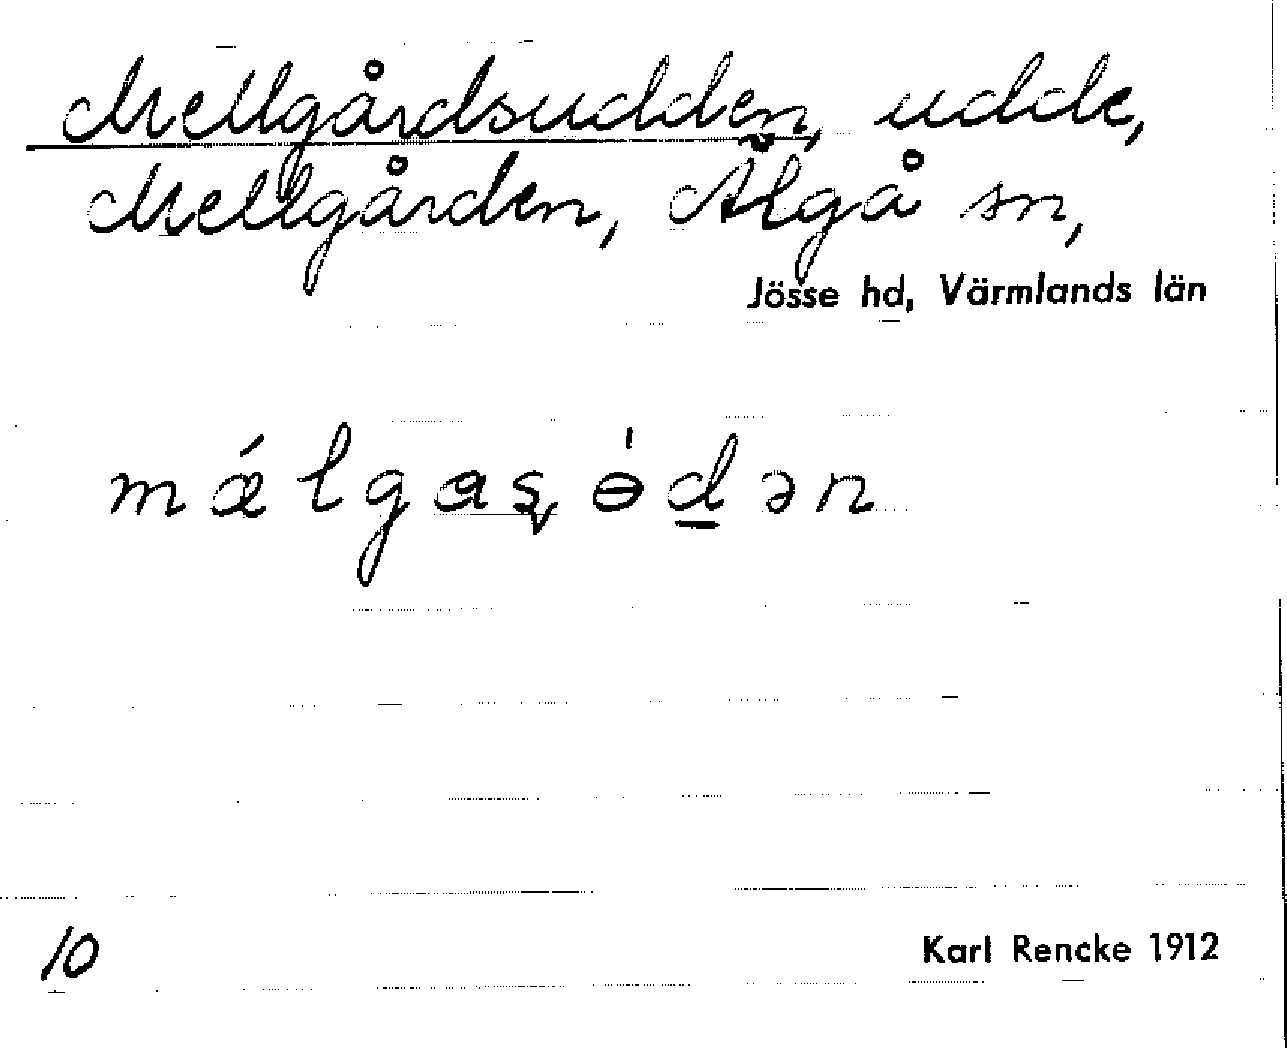 Mellgårdsudden, udde,
Mellgården, Älgå sn,
Jösse hd, Värmlands län
mǽlgaş ɵ́dən
10
Karl Rencke 1912